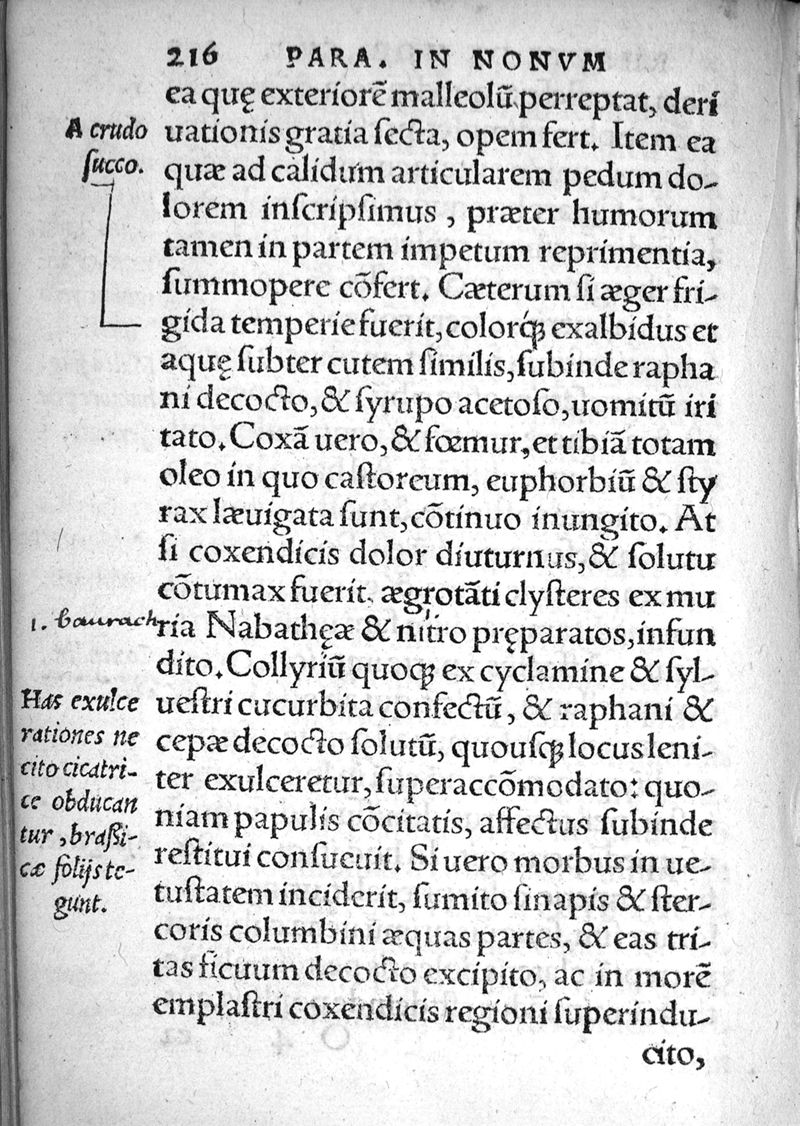 216 PARA. IN NONVM
ea quę exteriorē malleolū perreptat, deri
uationis gratia ſecta, opem fert. Item ea
A crudo
ſucco.
quæ ad calidum articularem pedum do-
lorem inſcripſimus, præter humorum
tamen in partem impetum reprimentia,
ſummopere cōfert. Cæterum ſi æger fri-
gida temperie fuerit, colorq́ꝫ exalbidus et
aquę ſubter cutem ſimilis, ſubinde rapha
ni decocto, & ſyrupo acetoſo, uomitū iri
tato. Coxā uero, & fœmur, et tibiā totam
oleo in quo caſtoreum, euphorbiū & ſty
rax læuigata ſunt, cōtinuo inungito. At
ſi coxendicis dolor diuturnus, & ſolutu
cōtumax fuerit. ægrotāti clyſteres ex mu
1. baurach
ria Nabathęæ & nitro pręparatos, infun
dito. Collyriū quoqꝫ ex cyclamine & ſyl-
ueſtri cucurbita confectū, & raphani &
cepæ decocto ſolutū, quouſqꝫ locus leni-
ter exulceretur, ſuperaccōmodato: quo-
niam papulis cōcitatis, affectus ſubinde
reſtitui conſueuit. Si uero morbus in ue-
tuſtatem inciderit, ſumito ſinapis & ſter-
coris columbini æquas partes, & eas tri-
tas ficuum decocto excipito, ac in morē
emplaſtri coxendicis regioni ſuperindu-
cito,
Has exulce
rationes ne
cito cicatri-
ce obducan
tur, braſſi-
cæ folijs te-
gunt.